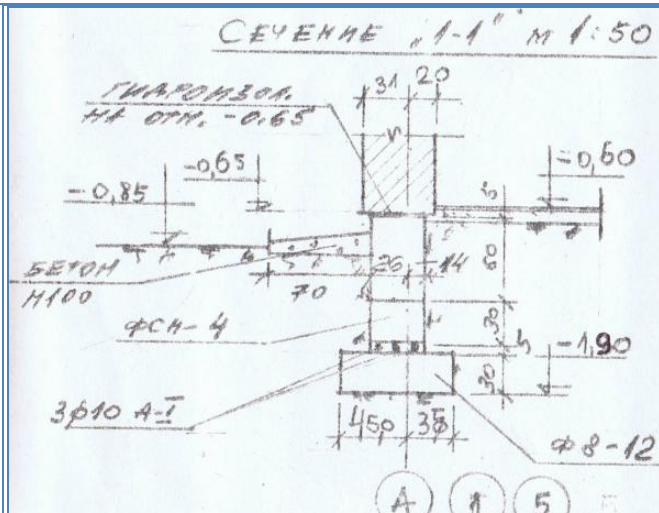 СЕЧЕНИЕ „1-1" М 1:50
31 20
ГИДРОИЗОЛ.
НА ОТМ. -0.65
-0,65
-0,60
-0,85
5
БЕТОН
М100
26 14
60
70
ФСН-4
30
5
-1,90
30
3ф10 А-I
450 35
Ф8-12
А 1 5